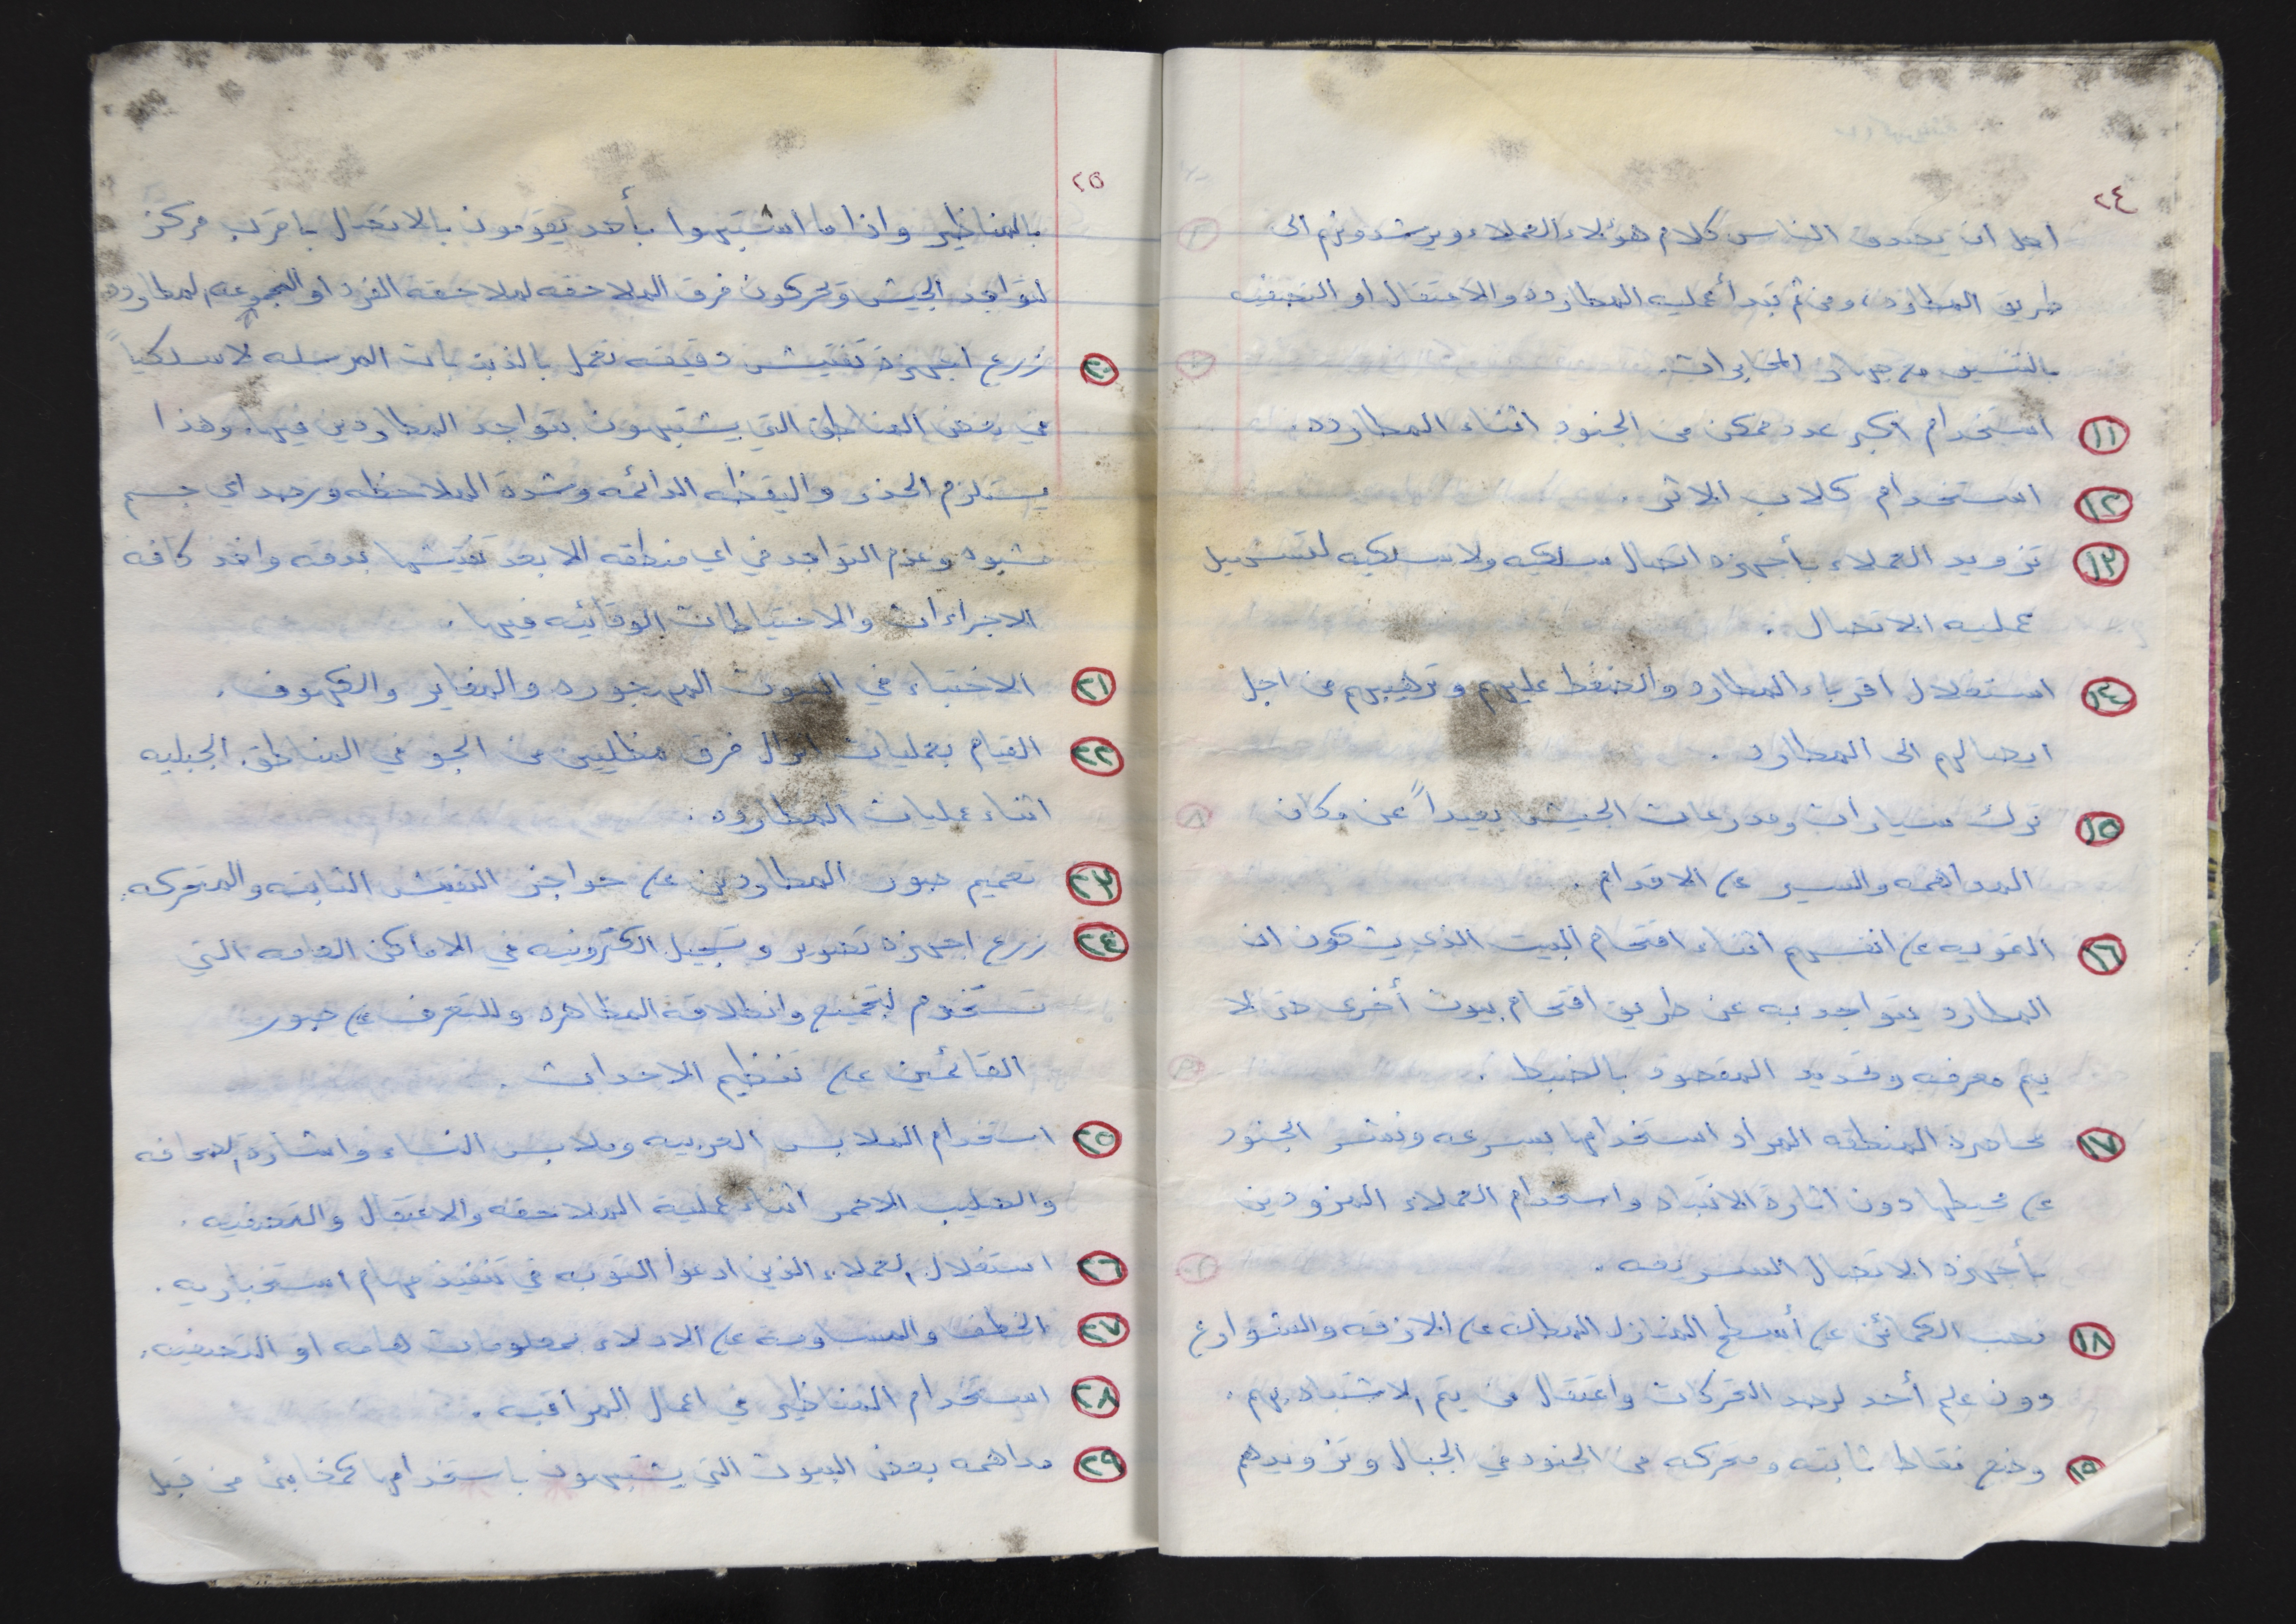 ٢٤
اجل ان يصدق الناس كلام هؤلاء العملاء ويرشدونهم الى
طريق المطارد، ومن ثم تبدأ عمليه المطارده والاعتقال او التصفيه
بالتنسيق مع جهاز المخابرات.
١١ استخدام اكبر عدد ممكن من الجنود اثناء المطارده.
١٢ استخدام كلاب الاثر.
١٣ تزويد العملاء بأجهزه اتصال سلكيه ولاسلكيه لتسهيل
عمليه الاتصال.
١٤ استغلال اقرباء المطارد والضغط عليهم وترهيبهم من اجل
ايصالهم الى المطارد.
١٥ ترك سيارات ومدرعات الجيش بعيداً عن مكان
المداهمه والسير على الاقدام.
١٦ التمويه على انفسهم اثناء اقتحام البيت الذي يشكون ان
المطارد يتواجد به عن طريق اقتحام بيوت أخرى حتى لا
يتم معرفه وتحديد المقصود بالضبط.
١٧ محاصرة المنطقه المراد استخدامها بسرعه ونشر الجنود
على محيطها دون اثارة الانتباه واستخدام العملاء المزودين
بأجهزه الاتصال السريعه.
١٨ نصب الكمائن على أسطح المنازل المطله على الازقه والشوارع
دون علم أحد لرصد التحركات واعتقال من يتم الاشتباه بهم.
١٩ وضع نقاط ثابته ومتحركه من الجنود في الجبال وتزويدهم
٢٥
بالمناظير واذا ما اشتبهوا بأحد يقومون بالاتصال باقرب مركز
لتواجد الجيش وتحركون فرق الملاحقه لملاحقة الفرد او المجموعه لمطارده
٢٠ زرع اجهزة تفتيش دقيقه تعمل بالذبذبات المرسله لاسلكياً
في بعض المناطق التي يشتبهون بتواجد المطاردين فيها، وهذا
يستلزم الحذر واليقظه الدائمه وشدة الملاحظه ورصد اي جسم
مشبوه وعدم التواجد في اي منطقه الا بعد تفتيشها بدقه واخذ كافه
الاجراءات والاحتياطات الوقائيه فيها.
٢١ الاختباء في البيوت المهجوره والمغاير والكهوف.
٢٢ القيام بعمليات انزال فرق مظليين من الجو في المناطق الجبليه
اثناء عمليات المطارده.
٢٣ تعميم صور المطاردين على حواجز التفتيش الثابته والمتحركه.
٢٤ زرع اجهزه تصوير وتسجيل الكترونيه في الاماكن العامه التي
تستخدم لتجميع وانطلاقة المظاهره وللتعرف على صور
القائمين على تنظيم الاحداث.
٢٥ استخدام الملابس العربيه وملابس النساء واشارة الصحافه
والصليب الاحمر اثناء عملية الملاحقه والاعتقال والتصفيه.
٢٦ استغلال العملاء الذين ادعوا التوبه في تنفيذ مهام استخباريه.
٢٧ الخطف والمساومة على الادلاء بمعلومات هامه او التصفيه.
٢٨ استخدام المناظير في اعمال المراقبه.
٢٩ مداهمه بعض البيوت التي يشتبهون باستخدامها كمخابئ من قبل